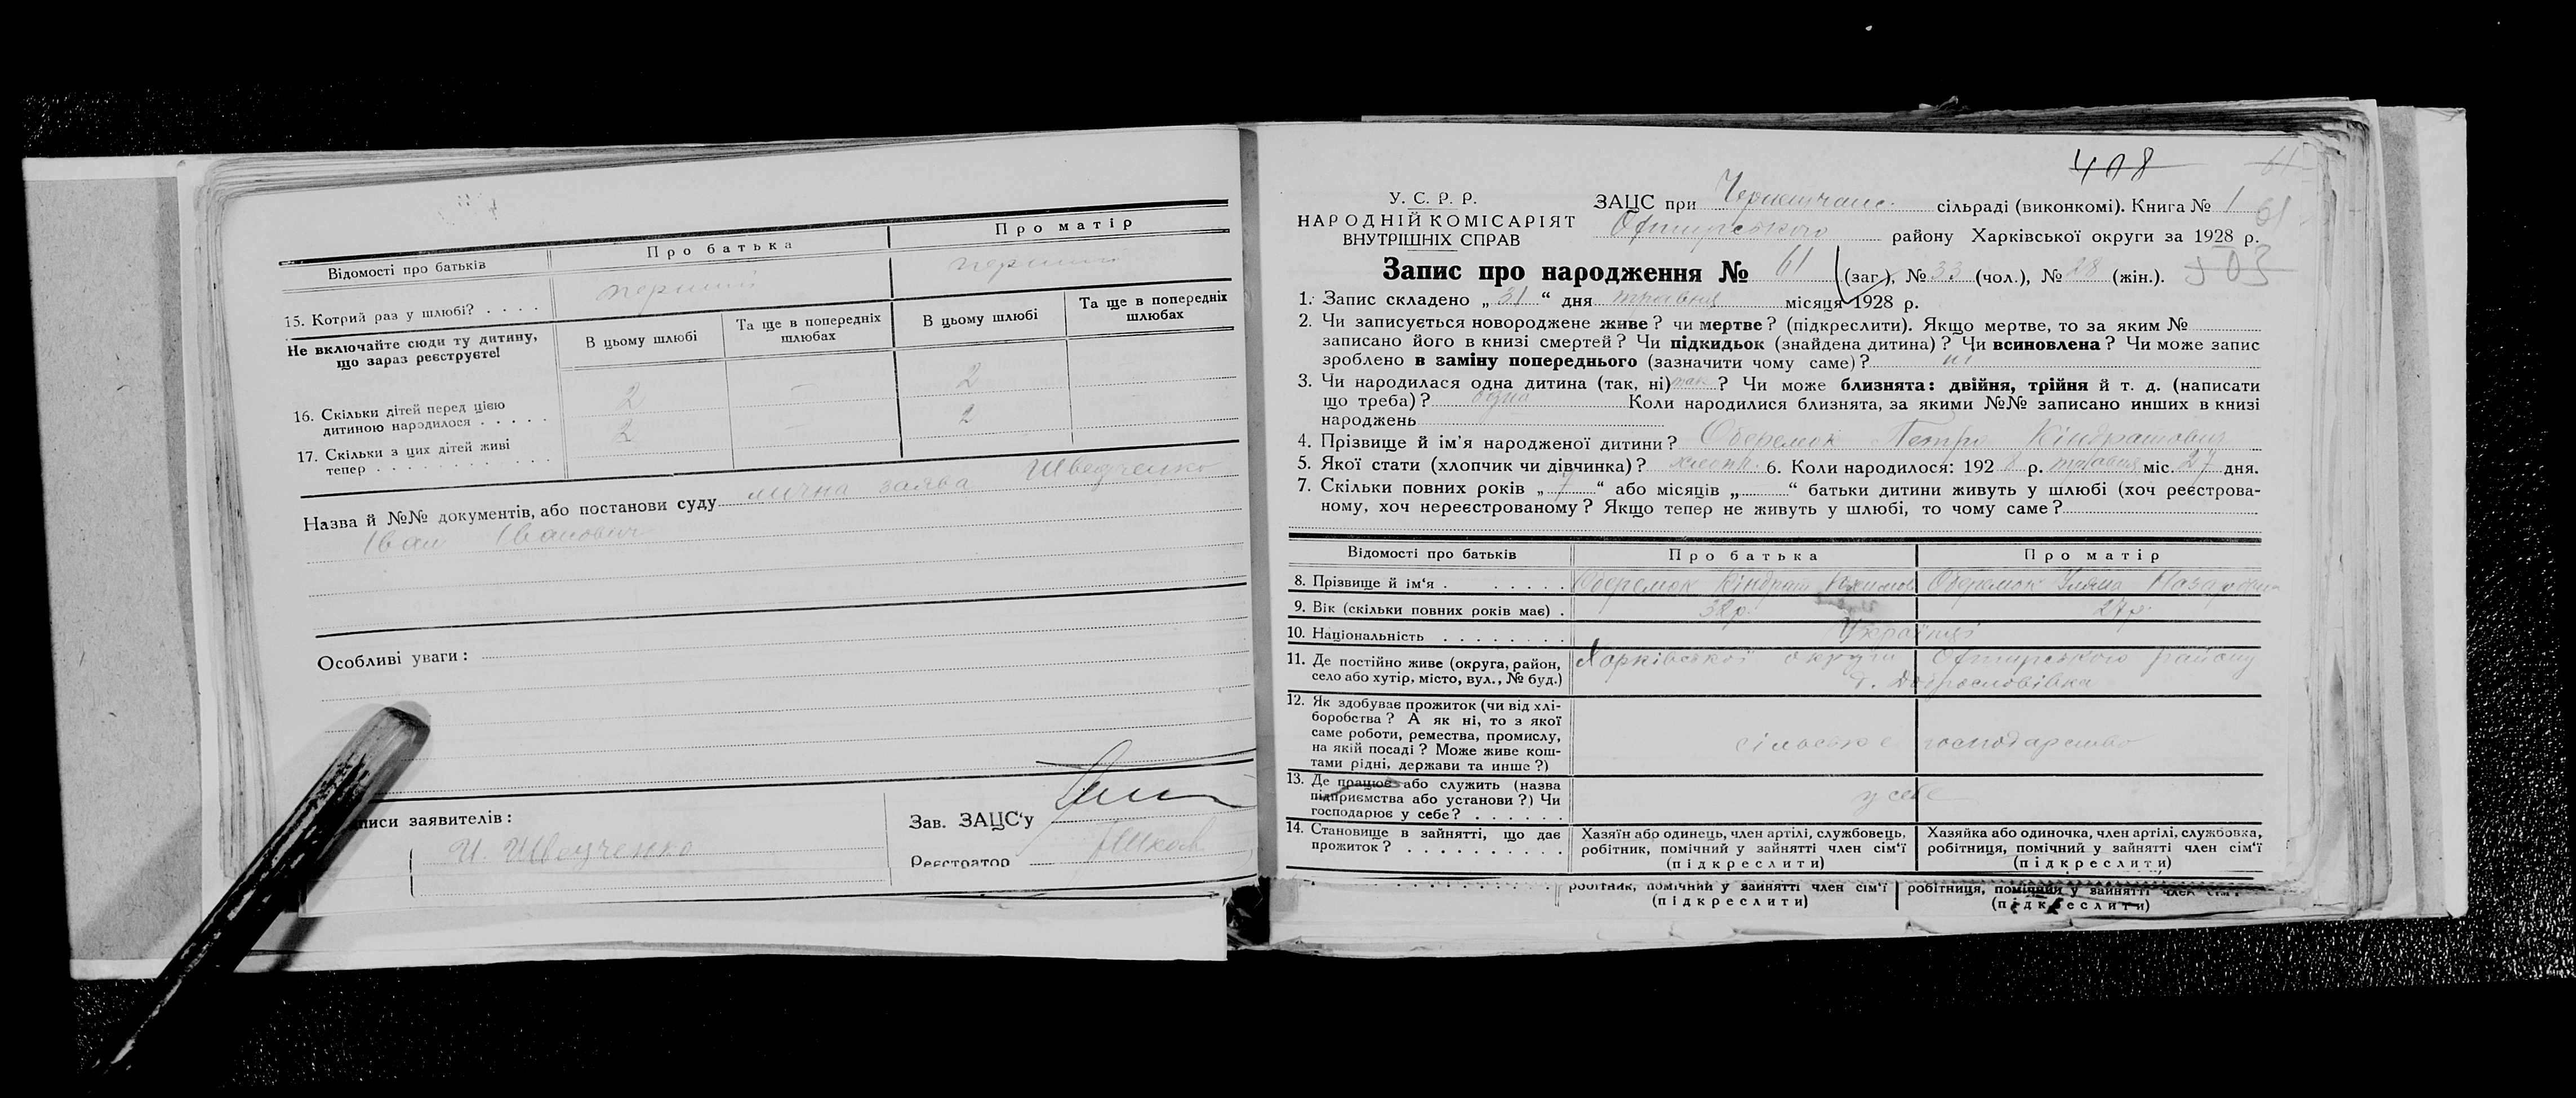 Відомості про батьків
Про батька
Про матір
15. Котрий раз у шлюбі? . . . .
перший
перший
Не включайте сюди ту дитину,
що зараз реєструєте!
В цьому шлюбі
Та ще в попередніх
шлюбах
В цьому шлюбі
Та ще в попередніх
шлюбах
16. Скільки дітей перед цією
дитиною народилося . . . . .
2
—
2
17. Скільки з цих дітей живі
тепер . . . . . . . . . . . .
2
—
2
Назва й №№ документів, або постанови суду лична заява Шведченко
Іван Іванович
Особливі уваги:
писи заявителів:
И. Шведченко
Зав. ЗАЦС'у
Реєстратор
408
61
У. С. Р. Р.
НАРОДНІЙ КОМІСАРІЯТ
ВНУТРІШНІХ СПРАВ
ЗАЦС при сільраді (виконкомі). Книга № 1
61
району Харківської округи за 1928 р.
503
Запис про народження № 61 (заг.), № 33 (чол.), № 28 (жін.).
1. Запис складено „ 31 “ дня травня місяця 1928 р.
2. Чи записується новороджене живе? чи мертве? (підкреслити). Якщо мертве, то за яким №
записано його в книзі смертей? Чи підкидьок (знайдена дитина)? Чи всиновлена? Чи може запис
зроблено в заміну попереднього (зазначити чому саме)? ні
3. Чи народилася одна дитина (так, ні) так? Чи може близнята: двійня, трійня й т. д. (написати
що треба)? одна Коли народилися близнята, за якими №№ записано инших в книзі
народжень
4. Прізвище й ім'я народженої дитини? Оберемок Петро Кіндратович
5. Якої стати (хлопчик чи дівчинка)? хлопч. 6. Коли народилося: 1928 р. травня міс. 27 дня.
7. Скільки повних років „ 7 “ або місяців „ “ батьки дитини живуть у шлюбі (хоч реєстрова-
ному, хоч нереєстрованому? Якщо тепер не живуть у шлюбі, то чому саме?
Відомості про батьків
Про батька
Про матір
8. Прізвище й ім'я . . . . . .
Оберемок Кіндрат
Оберемок Уляна Назаровна
9. Вік (скільки повних років має) .
32р.
27р.
10. Національність . . . . . . . .
Українці
11. Де постійно живе (округа, район,
село або хутір, місто, вул., № буд.)
Харківської округи району
12. Як здобуває прожиток (чи від хлі-
боробства? А як ні, то з якої
саме роботи, ремества, промислу,
на якій посаді? Може живе кош-
тами рідні, держави та инше?)
сільське господарство
13. Де працює або служить (назва
підприємства або установи?) Чи
господарює у себе? . . . . . .
у себе
14. Становище в зайнятті, що дає
прожиток? . . . . . . . . . .
Хазяїн або одинець, член артілі, службовець,
робітник, помічний у зайнятті член сім'ї
(підкреслити)
Хазяйка або одиночка, член артілі, службовка,
робітниця, помічний у зайнятті член сім'ї
(підкреслити)
робітник, помічний у зайнятті член сім'ї
(підкреслити)
робітниця, помічний у зайнятті член сім'ї
(підкреслити)